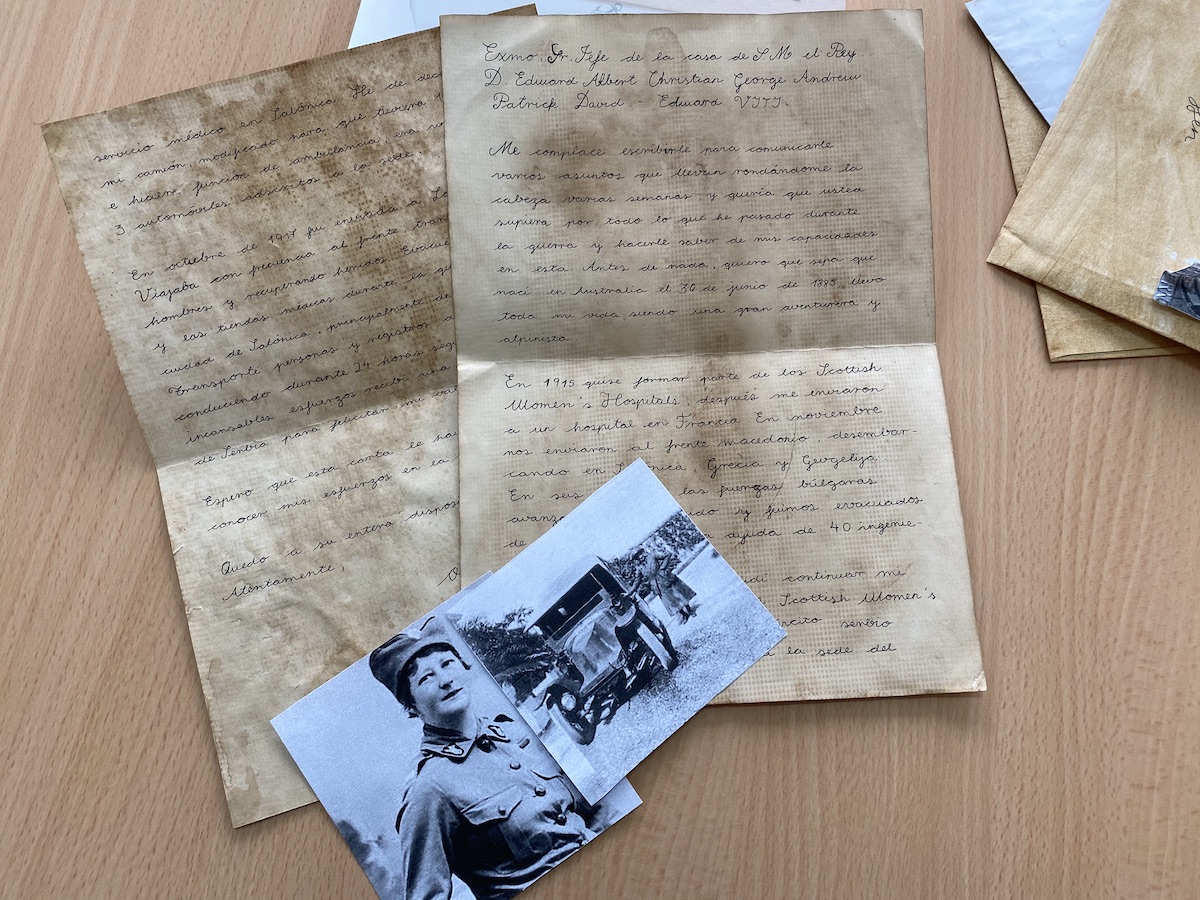 servicio médico en Salónica. He de deci
mi camión, modificado para que tuviera
e hiciera función de ambulancia, era un
3 automóviles adscritos a la sede
En octubre de 1917 fui enviada a
Viajaba con frecuencia al frente tran
hombres y recuperando heridos. Evacu
y las tiendas médicas durante la
ciudad de Salónica, principalmente de
Transporté personas y registros a
conduciendo durante 24 horas seg
incansables esfuerzos recibí una
de Serbia para felicitar mi
Espero que esta carta le ha
conocer mis esfuerzos en la
Quedo a su entera dispos
Atentamente,
Exmo. Sr. Jefe de la casa de S.M el Rey
D. Edward Albert Christian George Andrew
Patrick David - Edward VIII.
Me complace escribirle para comunicarle
varios asuntos que llevan rondándome la
cabeza varias semanas, y quería que usted
supiera por todo lo que he pasado durante
la guerra y hacerle saber de mis capacidades
en esta. Antes de nada, quiero que sepa que
nací en Australia el 30 de junio de 1883, llevo
toda mi vida siendo una gran aventurera y
alpinista.
En 1915 quise formar parte de los Scottish
Women's Hospitals, después me enviaron
a un hospital en Francia. En noviembre
nos enviaron al frente macedonio, desembar-
cando en Grecia y Gevgelija.
En seis las fuerzas búlgaras
avanza y fuimos evacuados
de ayuda de 40 ingenie-
continuar mi
Scottish Women's
serbio
a la sede del